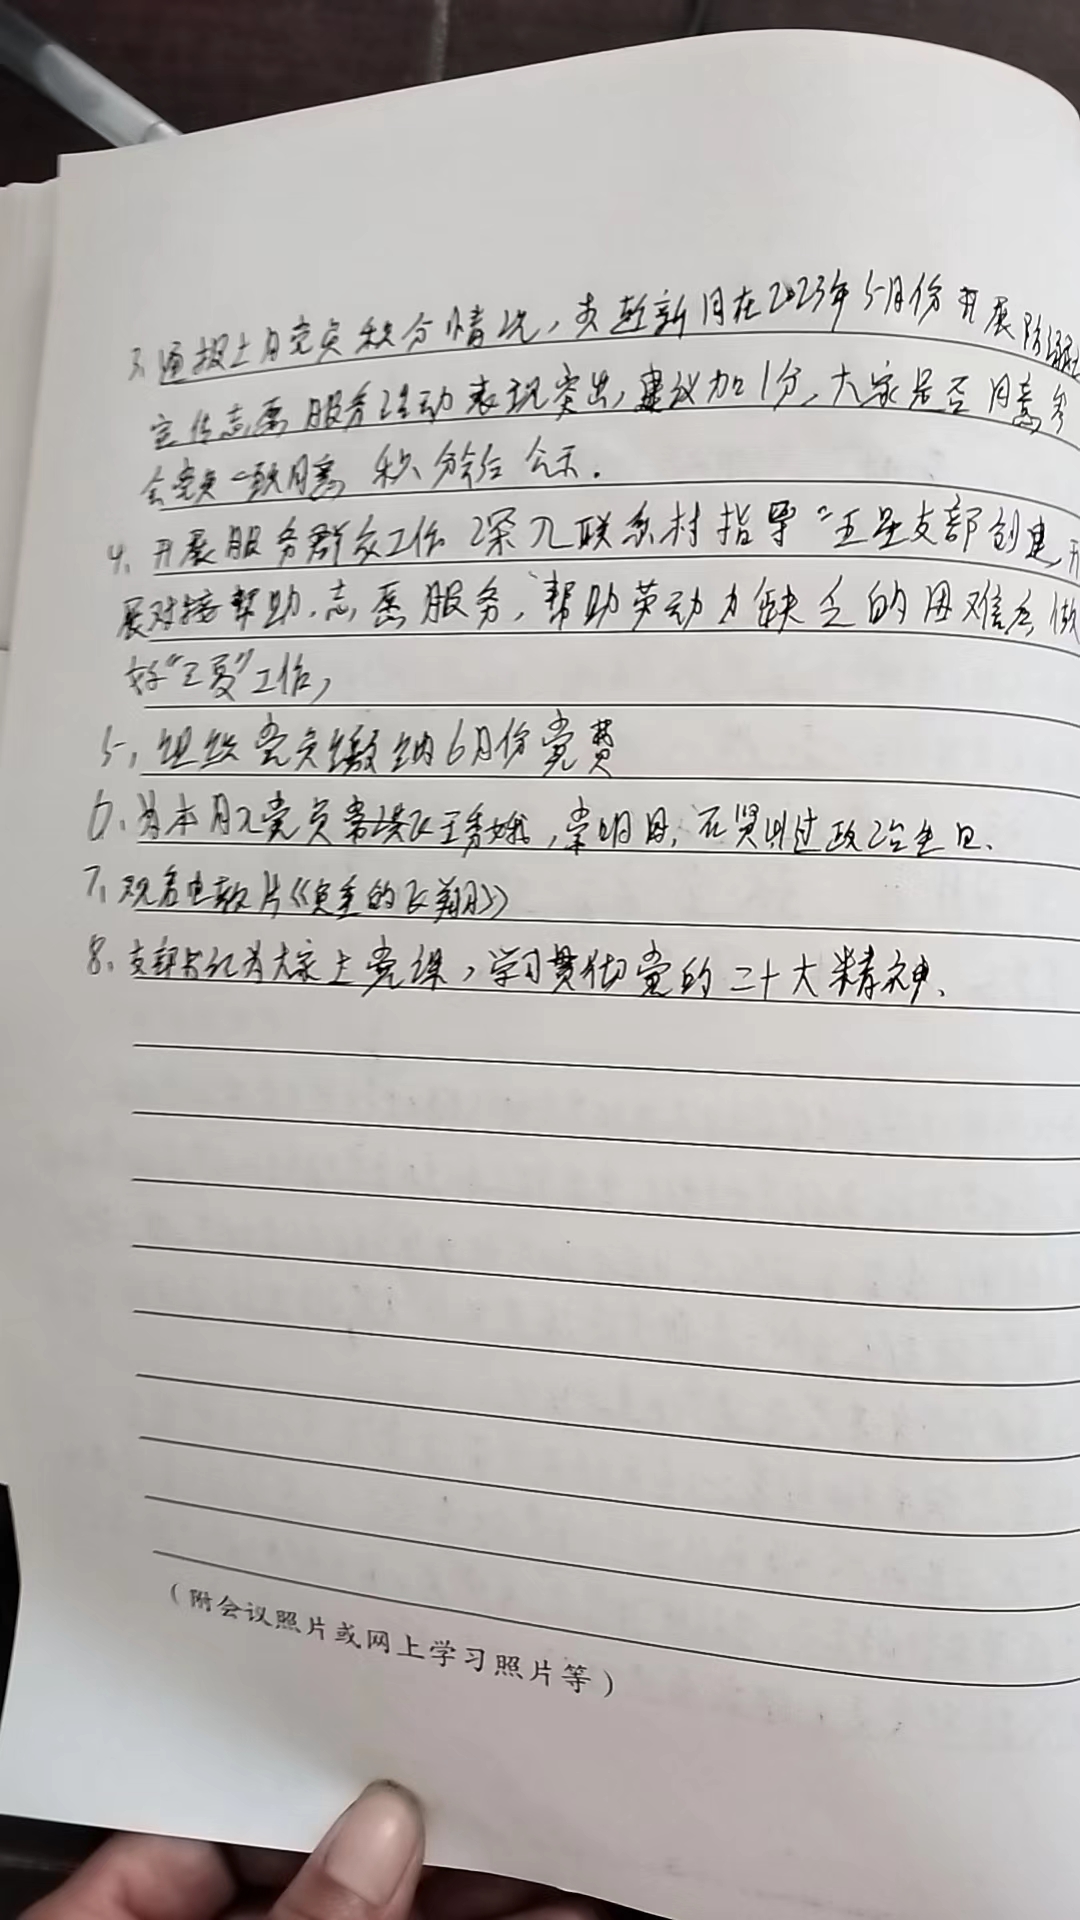 3、通报上月党员积分情况，赵新同在2023年5月份开展
宣传志愿服务活动表现突出，建议加1分，大家是否同意，参
会党员一致同意 积分给公示。
4、开展服务群众工作 深入联系村指导“五星支部创建，开
展对接帮助、志愿服务，帮助劳动力缺乏的困难户做
好“三夏”工作，
5、组织党员缴纳6月份党费
6、为本月党员王秀娥，过政治生日、
7、观看电教片《负重的飞翔》
8、支部书记为大家上党课，学习贯彻党的二十大精神、
（附会议照片或网上学习照片等）